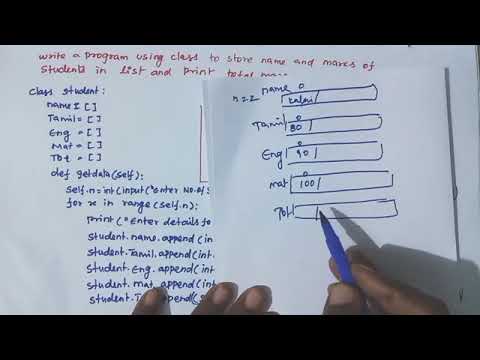 write a program using class to store name and marks of
students in list and print total
class student:
name = [ ]
Tamil = [ ]
Eng = [ ]
Mat = [ ]
Tot = [ ]
def getdata(self):
self.n = int(input("Enter No.of
for x in range(self.n):
print("Enter details fo
student.name.append(in
student.Tamil.append(int
student.Eng.append(int
student.mat.append(int
student.append(s
name 0
0
Tamil 80
0
Eng 90
0
mat 100
Tot